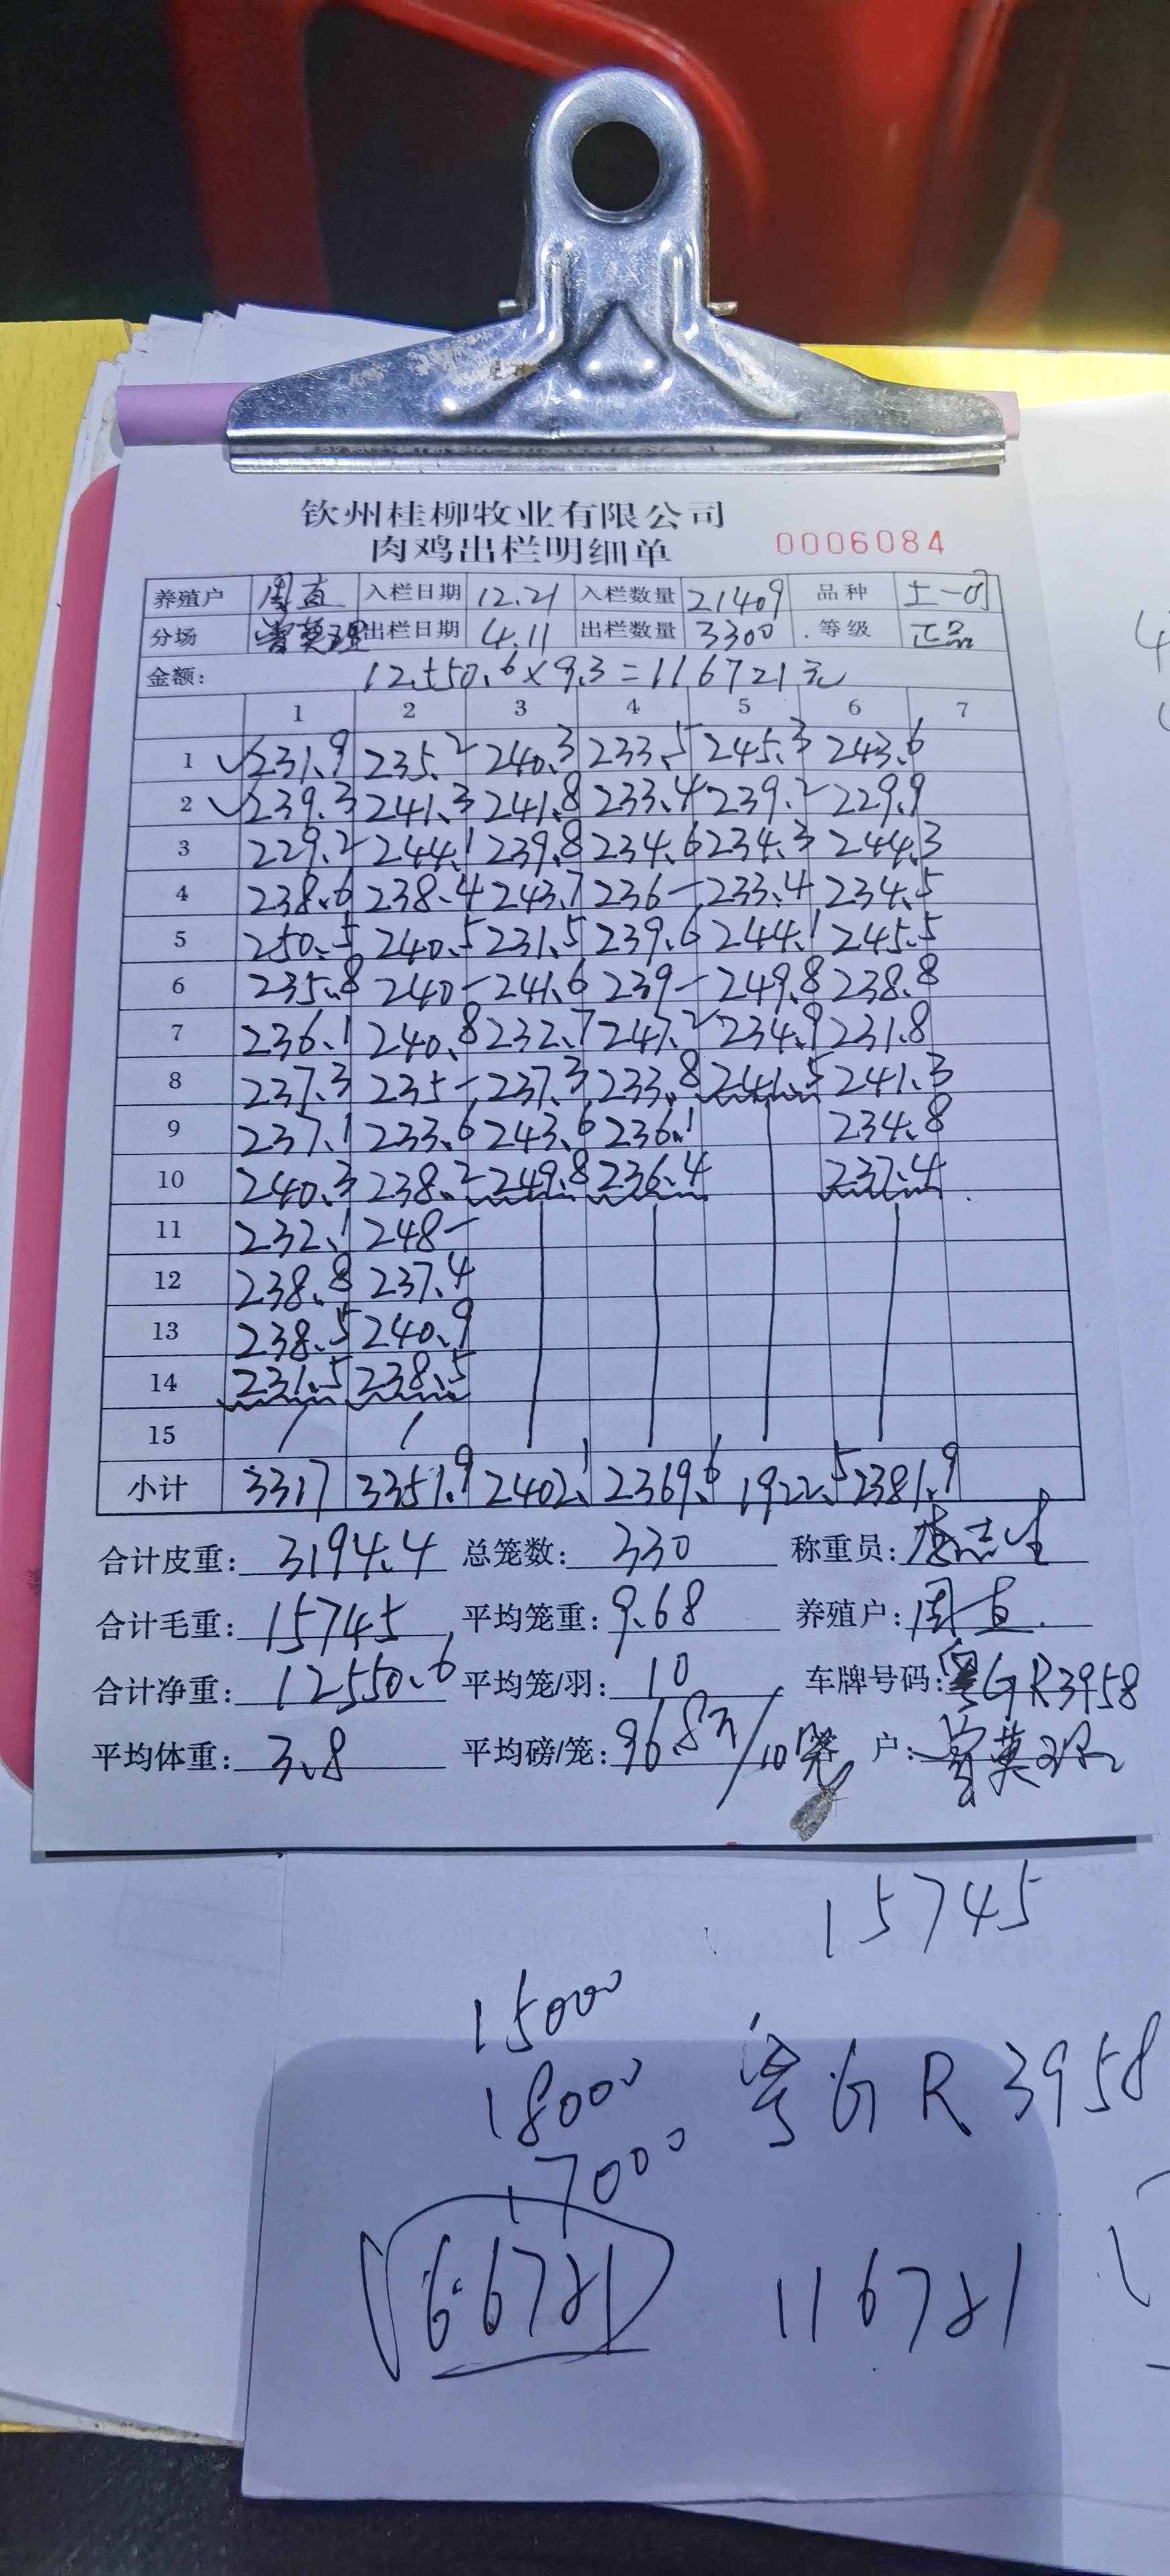 钦州桂柳牧业有限公司
肉鸡出栏明细单 0006084
养殖户 周直 入栏日期 12.21 入栏数量 21409 品种 土一
分场 出栏日期 4.11 出栏数量 3300 等级 正品
金额: 12550.6×9.3=116721元
1 2 3 4 5 6 7
1 231.9 235.2 240.3 233.5 245.3 243.6
2 239.3 241.3 241.8 233.4 239.2 229.9
3 229.2 244.1 239.8 234.6 234.3 244.3
4 238.6 238.4 243.7 236- 233.4 234.5
5 250.5 240.5 231.5 239.6 244.1 245.5
6 235.8 240- 241.6 239- 249.8 238.8
7 236.1 240.8 232.7 247.2 234.9 231.8
8 237.3 235- 237.3 233.8 241.5 241.3
9 237.1 233.6 243.6 236.1 234.8
10 240.3 238.2 249.8 236.4 237.4
11 232.1 248-
12 238.8 237.4
13 238.5 240.9
14 231.5 238.5
15 / /
小计 3317 3351.9 2402.1 2369.6 1922.5 2381.9
合计皮重: 3194.4 总笼数: 330 称重员: 志生
合计毛重: 15745 平均笼重: 9.68 养殖户: 周直
合计净重: 12550.6 平均笼/羽: 10 车牌号码: 粤GR3958
平均体重: 3.8 平均磅/笼: 96.8 /10 户:
15745
15000
18000
粤GR3958
17000
66721 116721